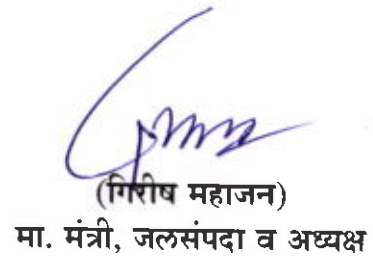 (गिरीष महाजन)
मा. मंत्री, जलसंपदा व अध्यक्ष